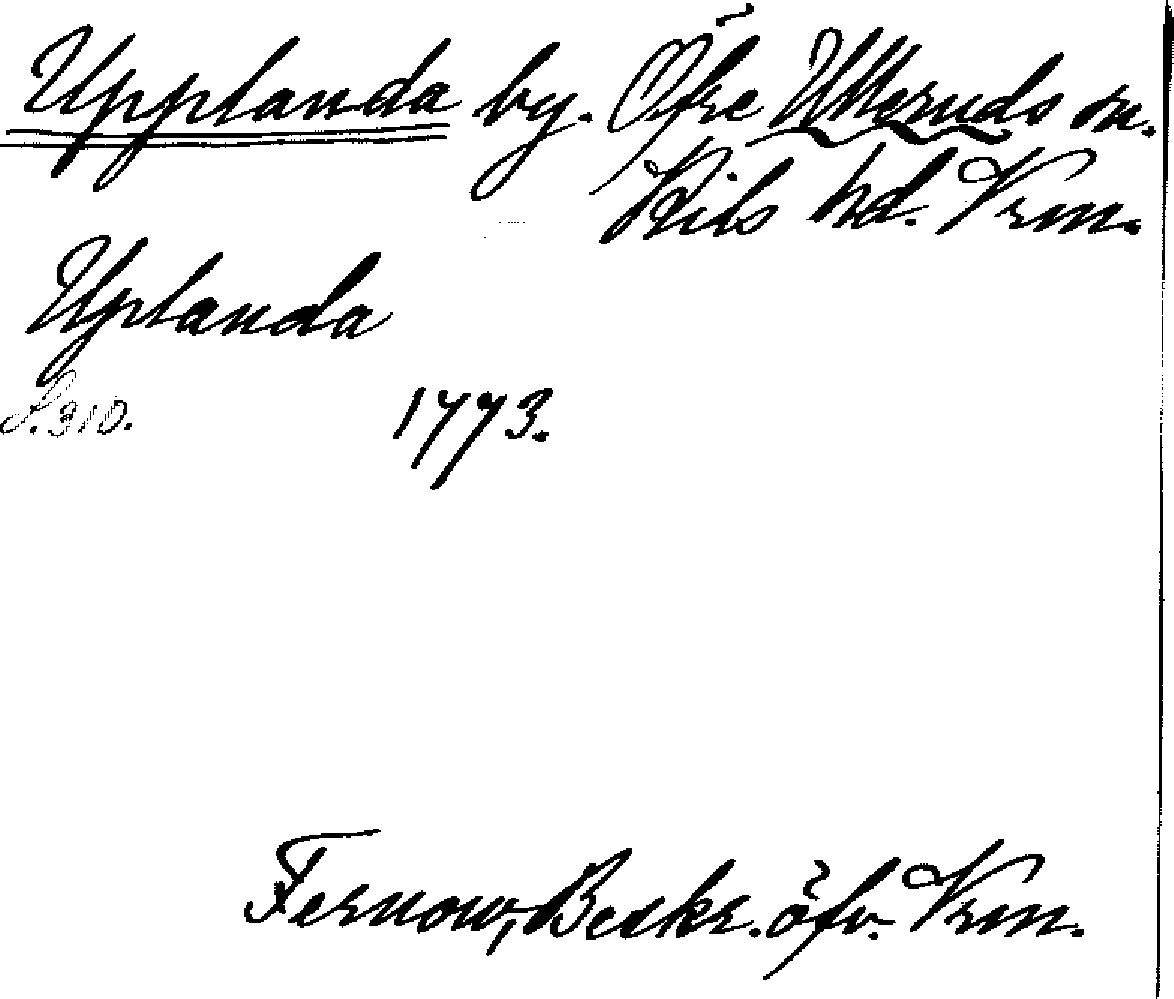 Upplanda by. Öfre Ulleruds sn.
Kils hd. Vrm.
Uplanda
S. 310. 1773.
Fernow, Beskr. öfv. Vrm.